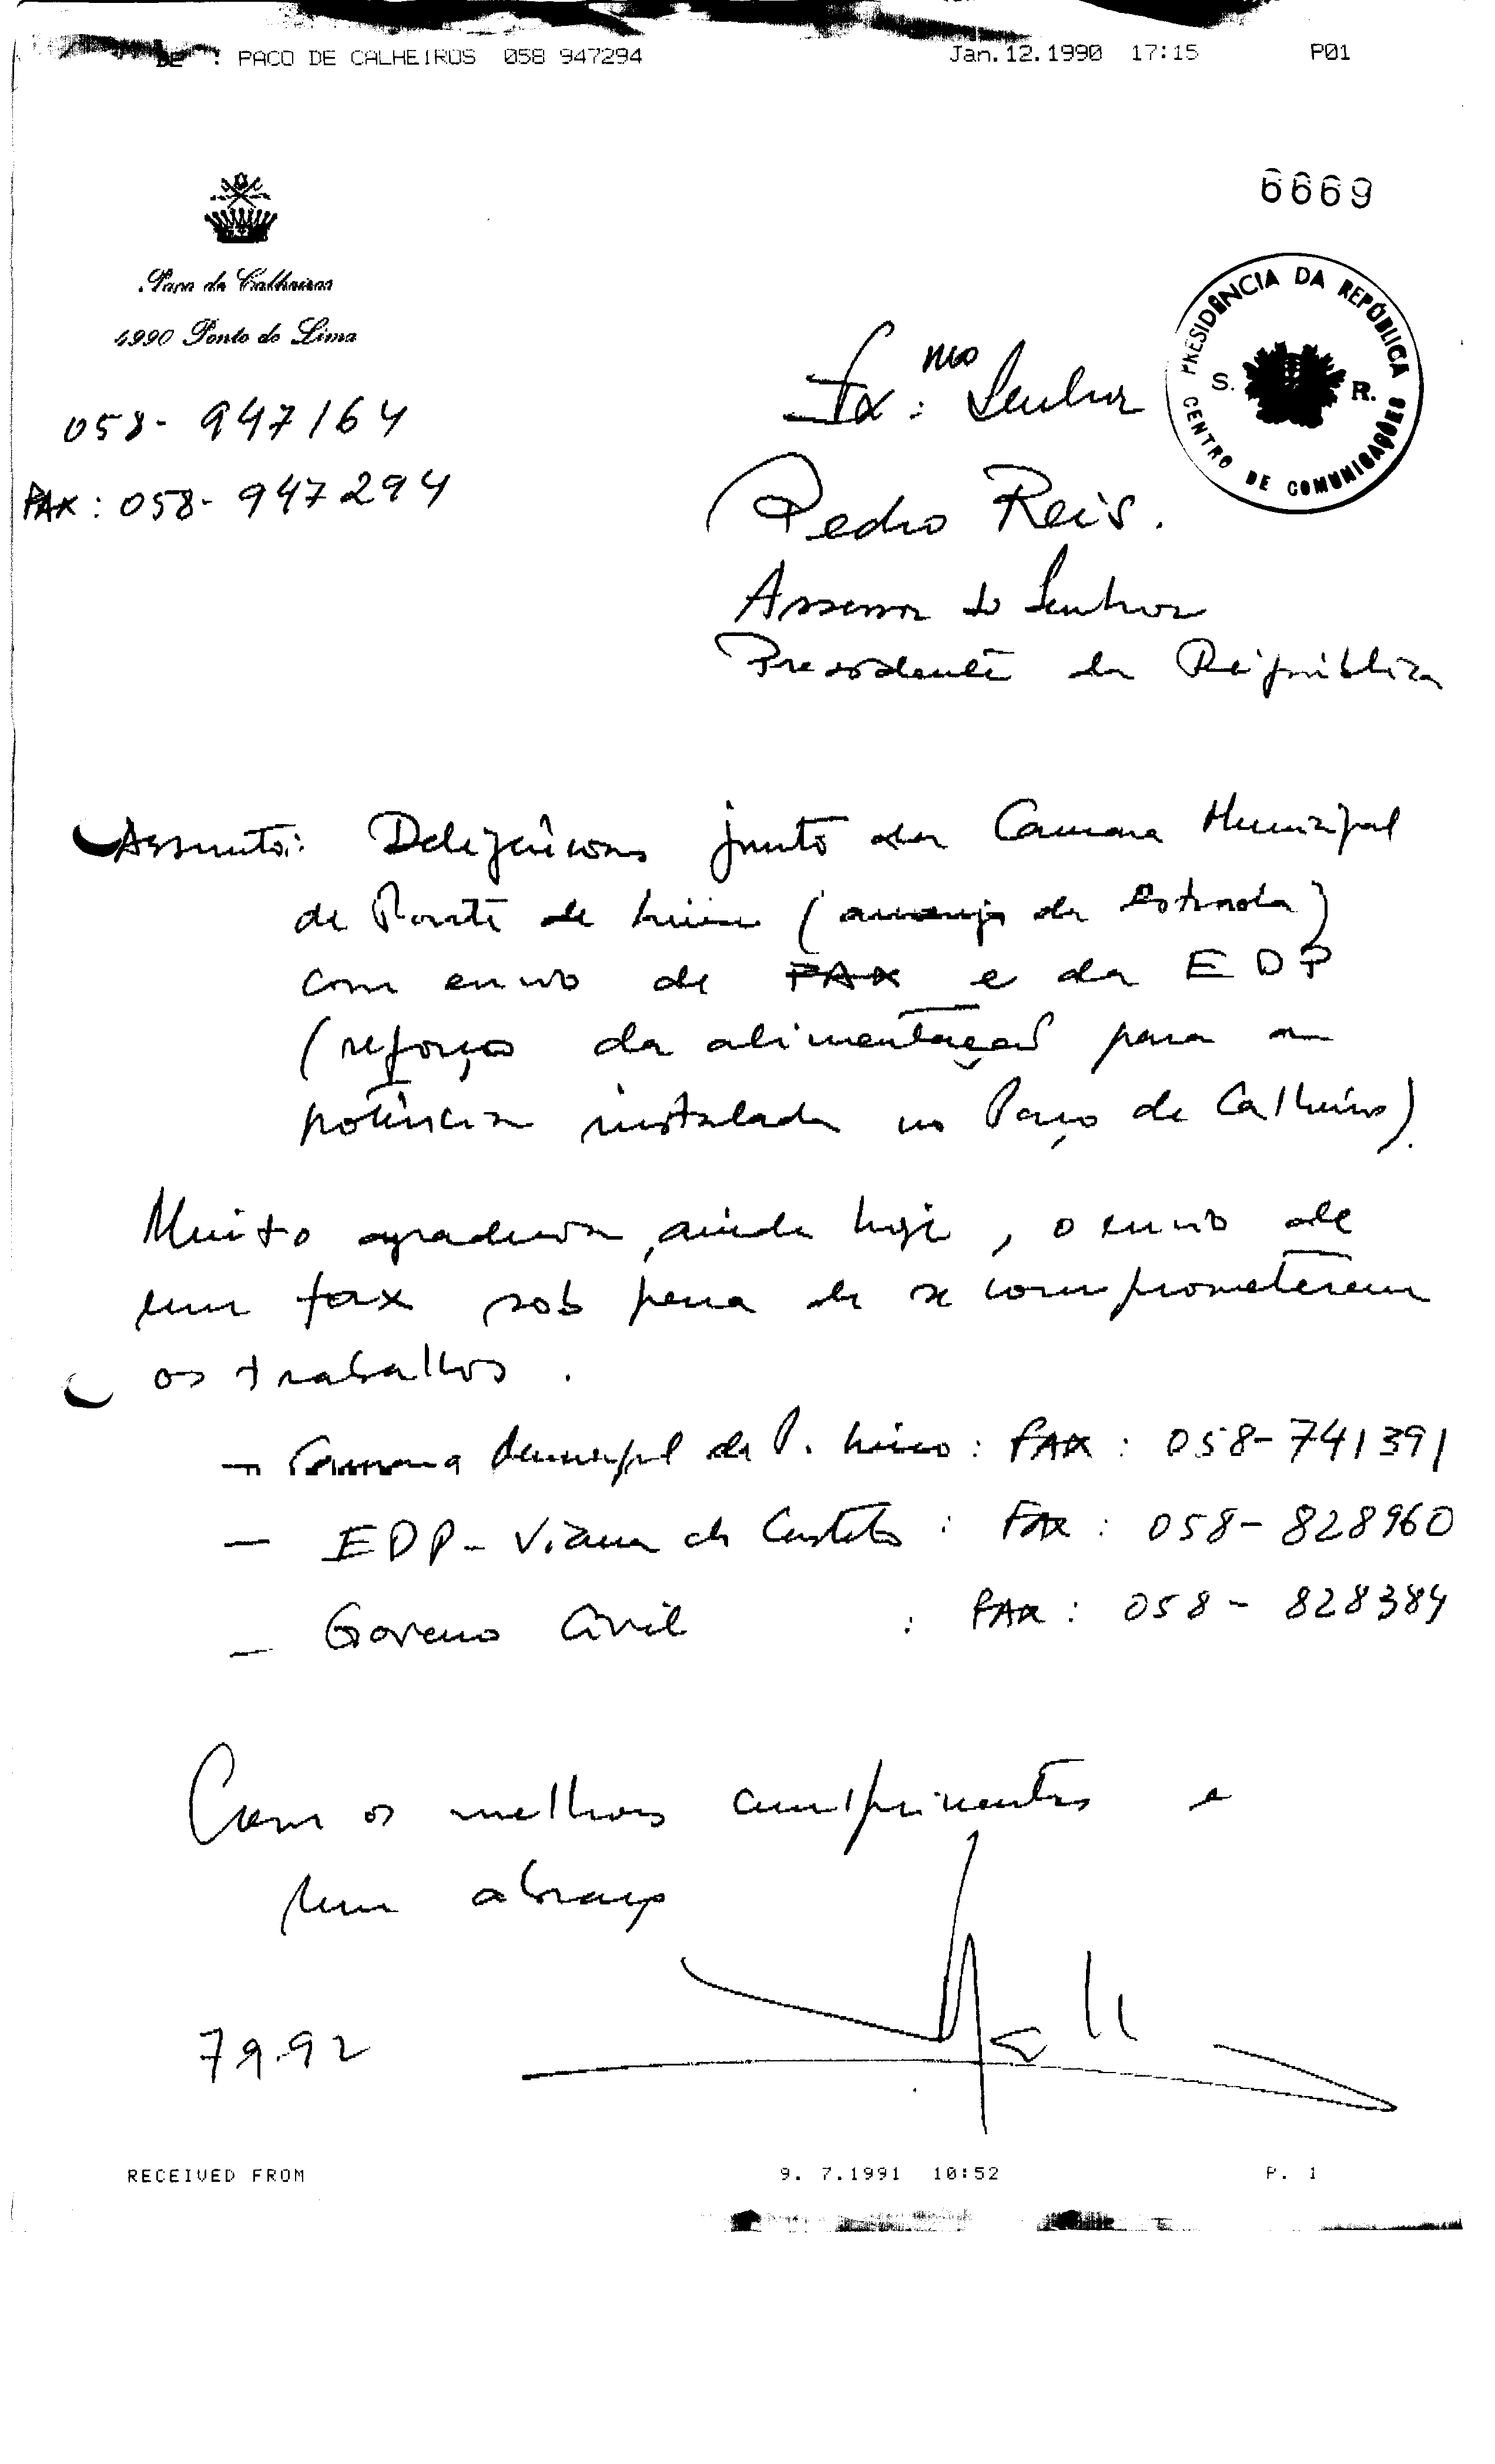 DE : PACO DE CALHEIROS 058 947294 Jan.12.1990 17:15 P01
6669
Paço de Calheiros
4990 Ponte do Lima
PRESIDÊNCIA DA REPÚBLICA
S. R.
CENTRO DE COMUNICAÇÕES
058-947164
FAX: 058-947294
Exmo: Senhor
Pedro Reis.
Assessor do Senhor
Presidente da República
Assunto: Deligências junto da Camara Municipal
de Ponte de Lima (arranjo da Estrada)
com envio de FAX e da EDP
(reforço da alimentação para a
potência instalada no Paço de Calheiros).
Muito agradecia, ainda hoje, o envio de
um fax sob pena de se comprometerem
os trabalhos.
- Camara Municipal de P. Lima : FAX : 058-741391
- EDP - Viana do Castelo : Fax : 058-828960
- Governo Civil : FAX : 058-828384
Com os melhores cumprimentos e
um abraço
79.92
RECEIVED FROM 9. 7.1991 10:52 P. 1